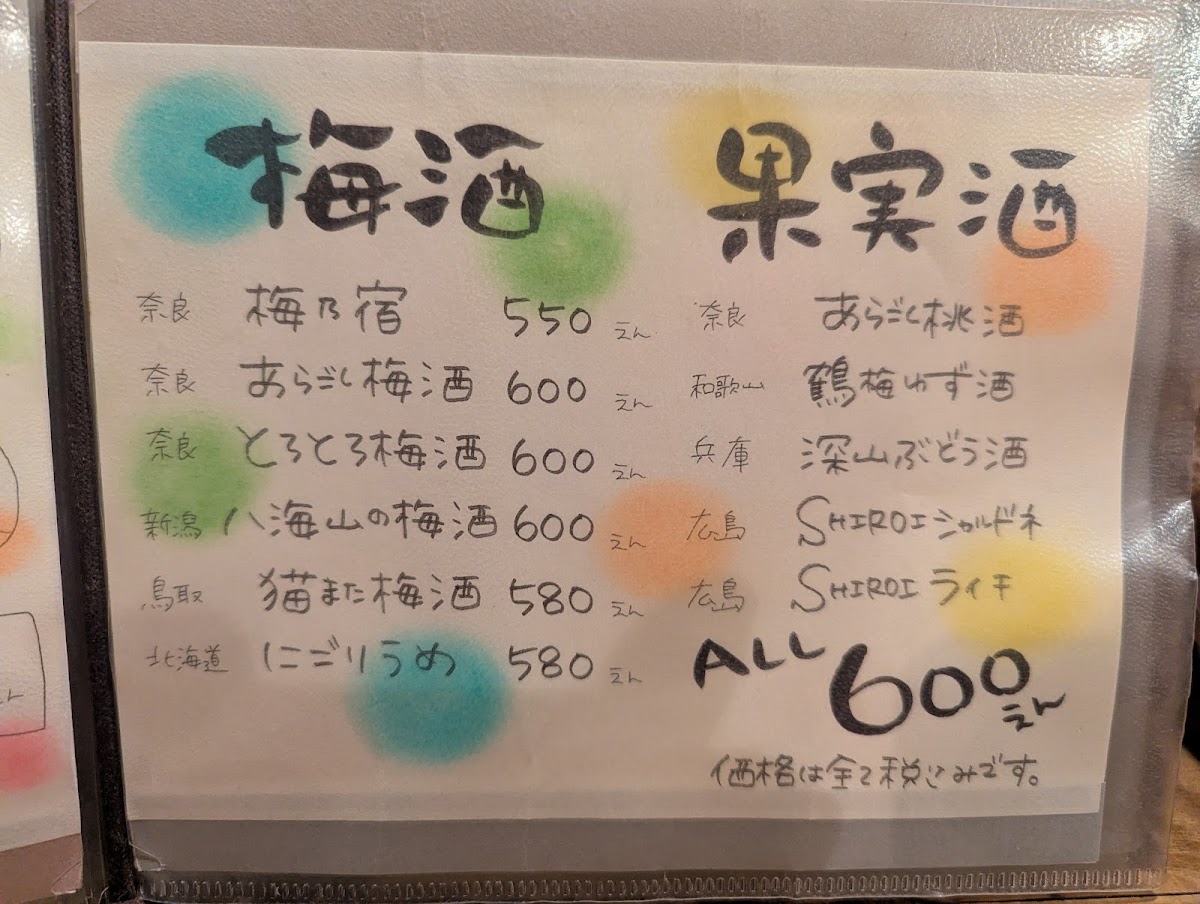 梅酒
奈良 梅乃宿 550えん
奈良 あらごし梅酒 600えん
奈良 とろとろ梅酒 600えん
新潟 八海山の梅酒 600えん
鳥取 猫また梅酒 580えん
北海道 にごりうめ 580えん
果実酒
奈良 あらごし桃酒
和歌山 鶴梅ゆず酒
兵庫 深山ぶどう酒
広島 SHIROIシャルドネ
広島 SHIROIライチ
ALL 600えん
価格は全て税込みです。